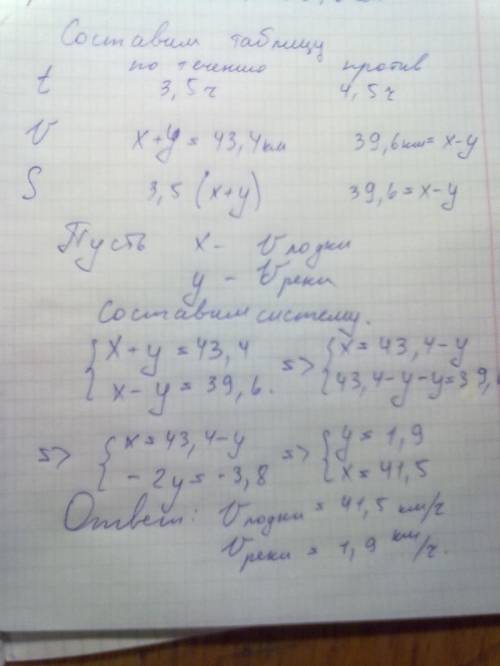 Составим таблицу
по течению против
t 3,5 ч 4,5 ч
V x+y = 43,4 км 39,6 км = x-y
S 3,5 (x+y) 39,6 = x-y
Пусть x - V лодки
y - V реки
Составим систему.
{ x+y = 43,4 => { x = 43,4-y
{ x-y = 39,6. { 43,4-y-y=39,6
=> { x = 43,4-y => { y = 1,9
{ -2y = -3,8 { x = 41,5
Ответ: V лодки = 41,5 км/ч
V реки = 1,9 км/ч.